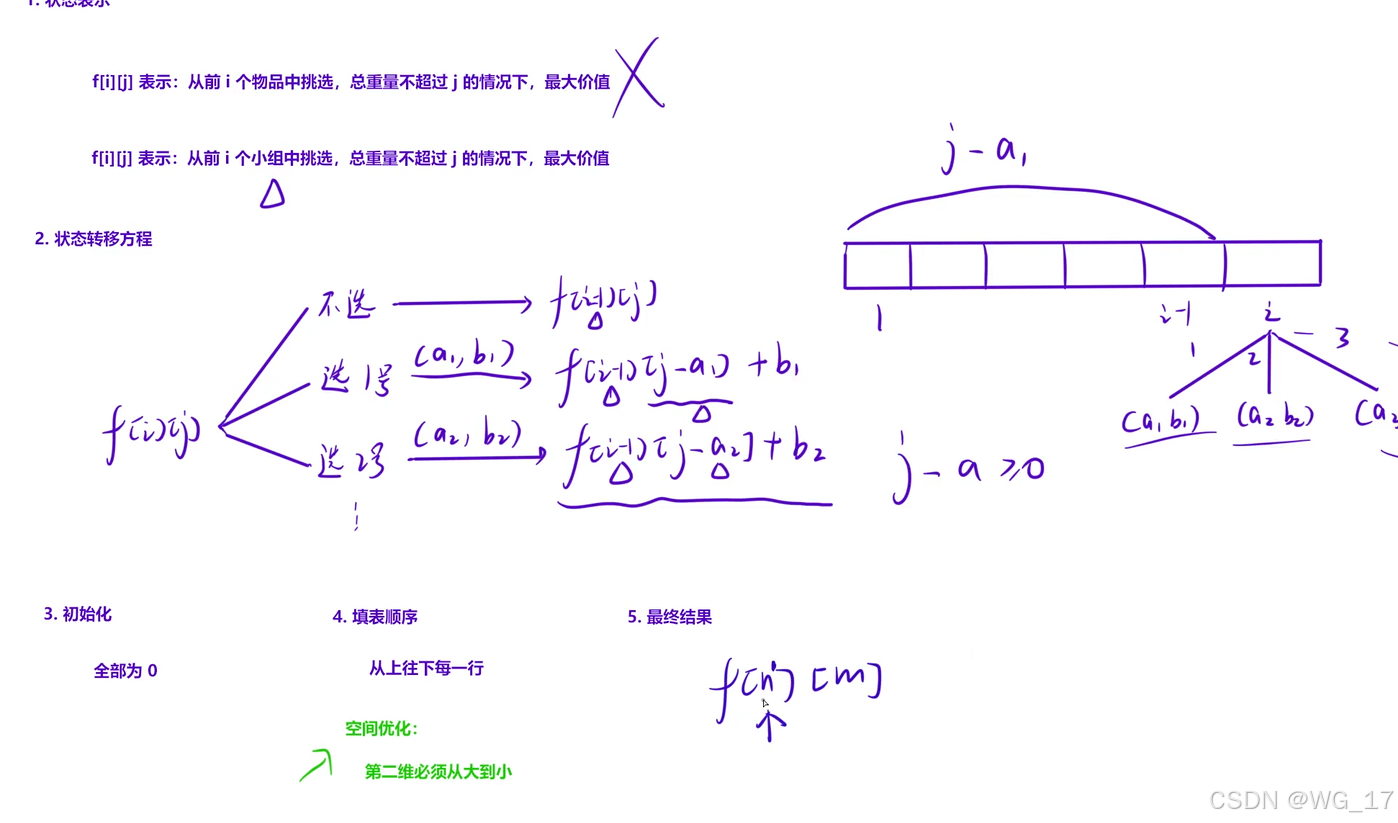 1. 状态表示
f[i][j] 表示：从前 i 个物品中挑选，总重量不超过 j 的情况下，最大价值
f[i][j] 表示：从前 i 个小组中挑选，总重量不超过 j 的情况下，最大价值
2. 状态转移方程
f[i][j]
不选 f[i-1][j]
选 1号 (a₁, b₁) f[i-1][j-a₁] + b₁
选 2号 (a₂, b₂) f[i-1][j-a₂] + b₂
j - a₁
1 i-1 i
1 2 3
(a₁ b₁) (a₂ b₂) (a₃
j - a ≥ 0
3. 初始化
全部为 0
4. 填表顺序
从上往下每一行
空间优化：
第二维必须从大到小
5. 最终结果
f[n][m]
CSDN @WG_17